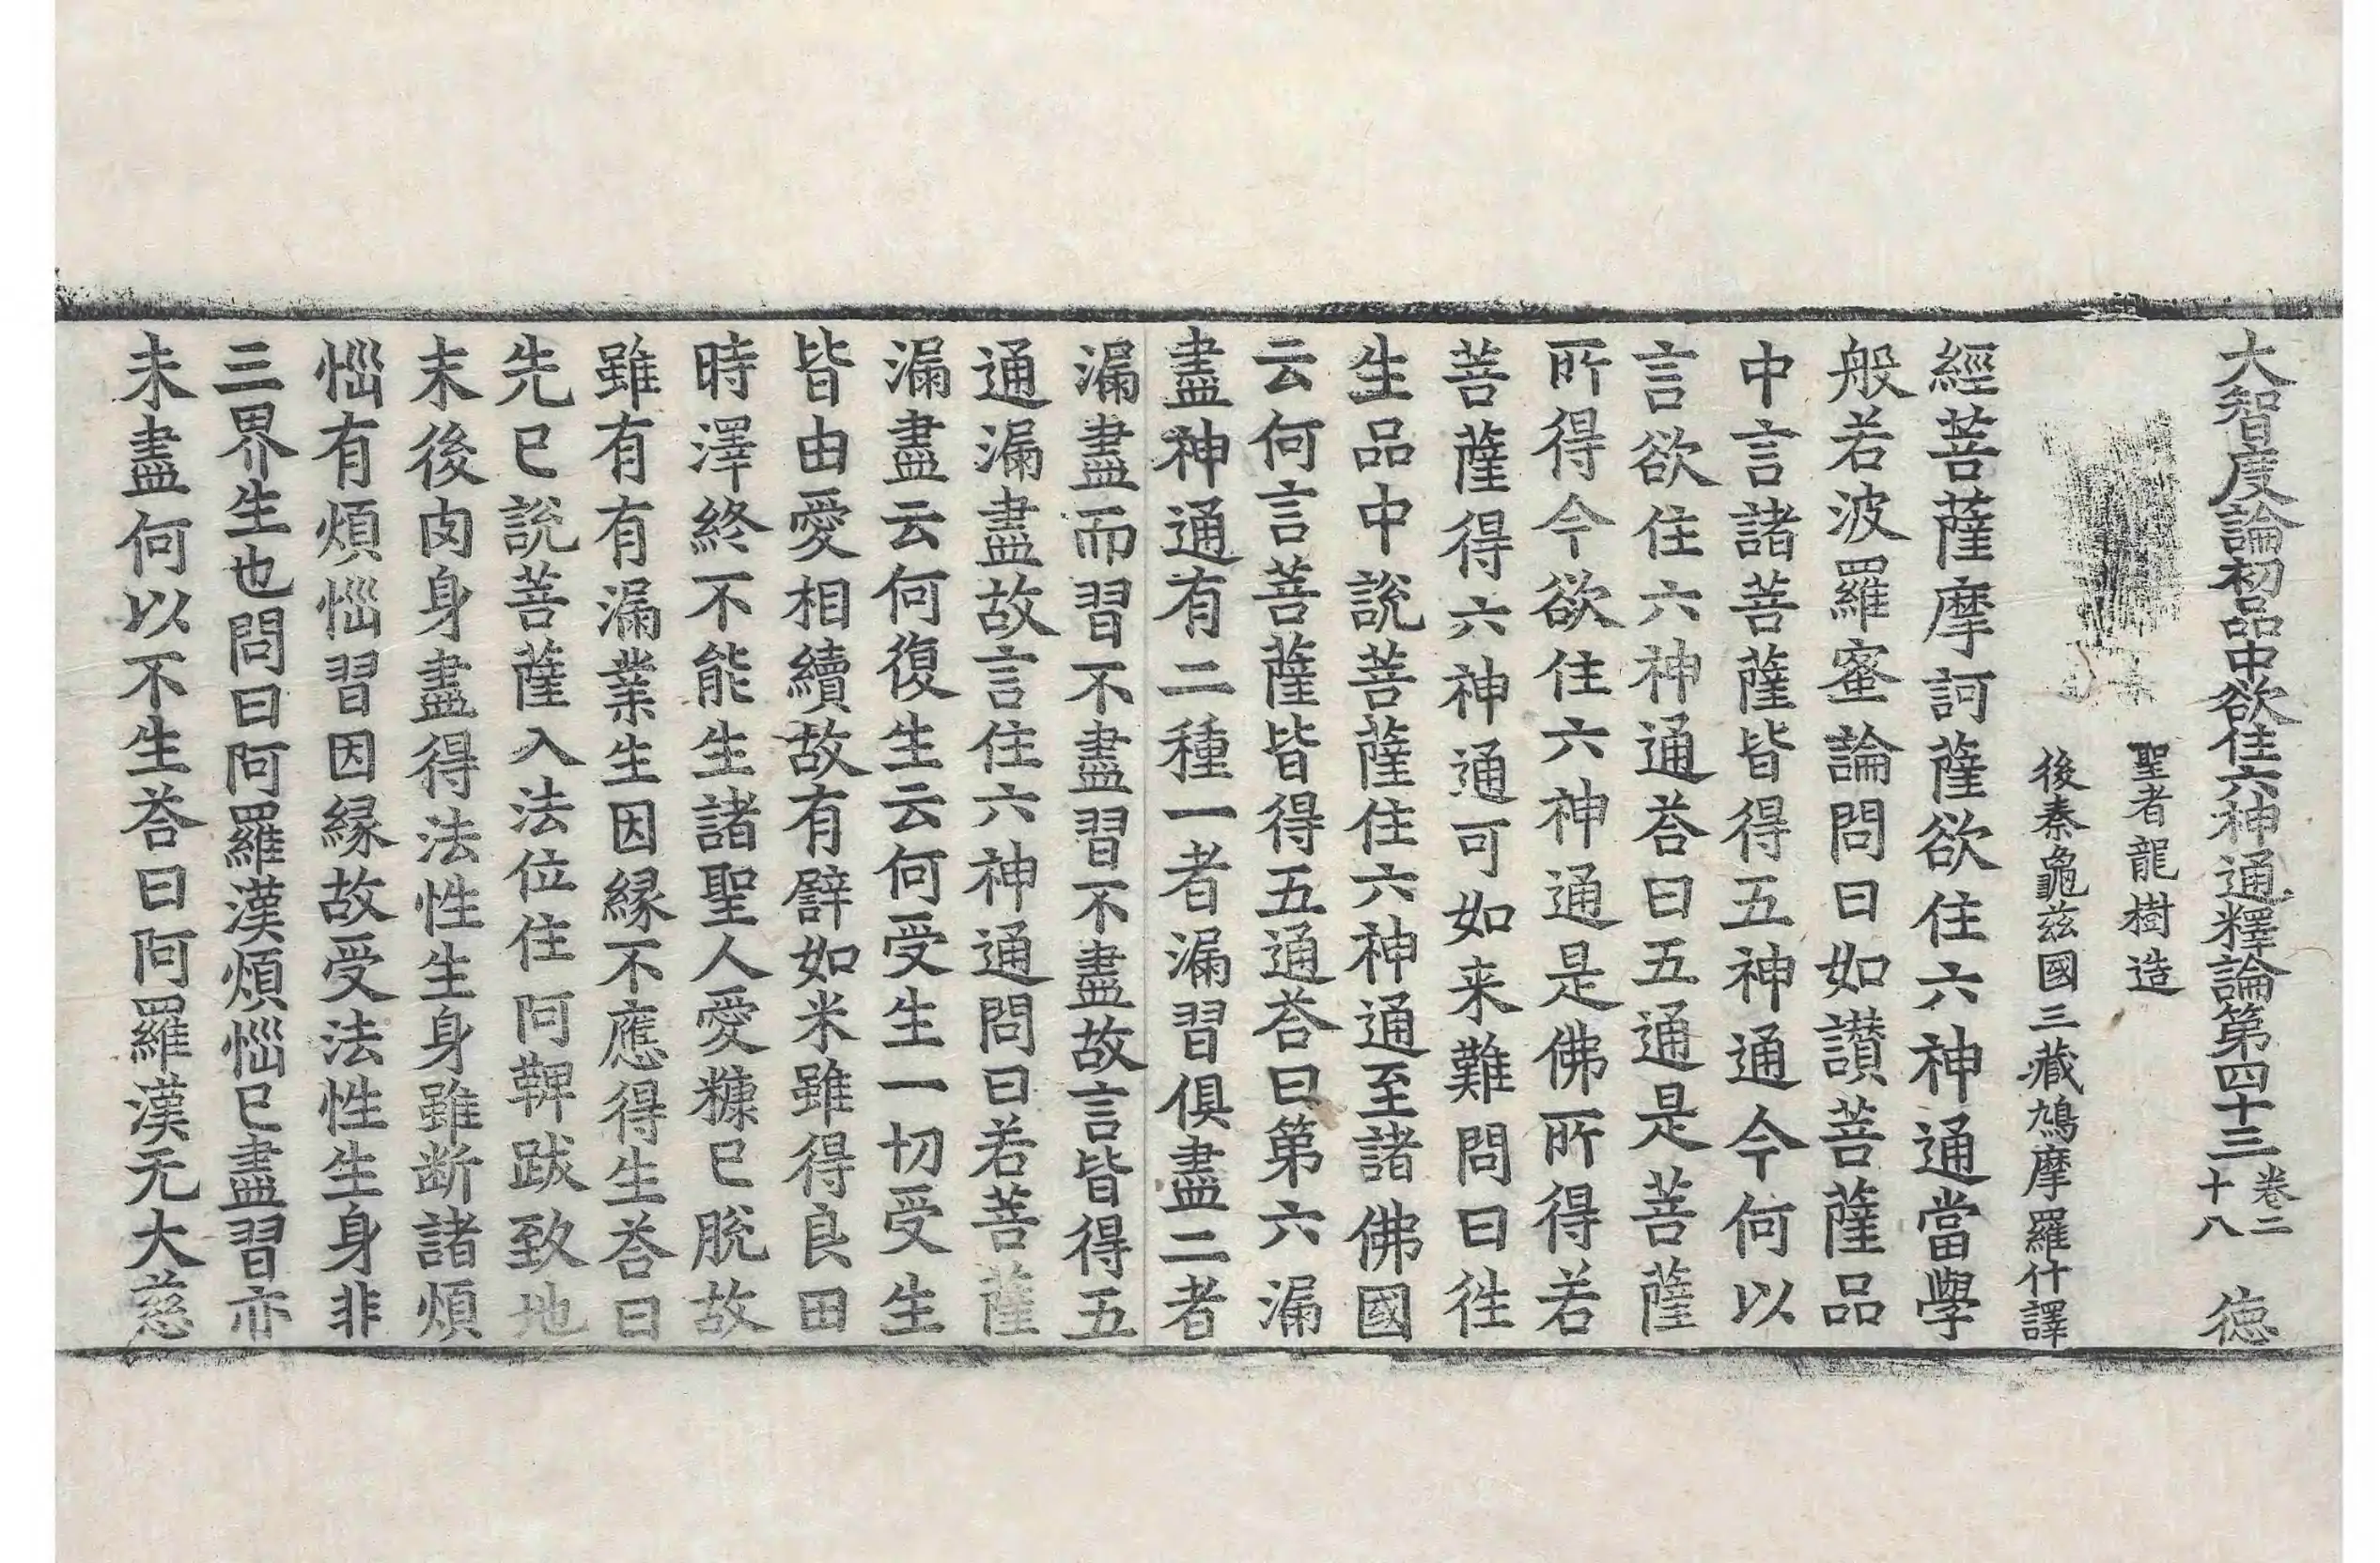 大智度論初品中欲住六神通釋論第四十三 卷二十八 德
聖者龍樹造
後秦龜茲國三藏鳩摩羅什譯
經菩薩摩訶薩欲住六神通當學
般若波羅蜜論問曰如讃菩薩品
中言諸菩薩皆得五神通今何以
言欲住六神通荅曰五通是菩薩
所得今欲住六神通是佛所得若
菩薩得六神通可如来難問曰徃
生品中說菩薩住六神通至諸佛國
云何言菩薩皆得五通荅曰第六漏
盡神通有二種一者漏習俱盡二者
漏盡而習不盡習不盡故言皆得五
通漏盡故言住六神通問曰若菩薩
漏盡云何復生云何受生一切受生
皆由愛相續故有譬如米雖得良田
時澤終不能生諸聖人愛糠已脫故
雖有有漏業生因縁不應得生荅曰
先已說菩薩入法位住阿鞞跋致地
末後肉身盡得法性生身雖断諸煩
惱有煩惱習因縁故受法性生身非
三界生也問曰阿羅漢煩惱已盡習亦
未盡何以不生荅曰阿羅漢无大慈